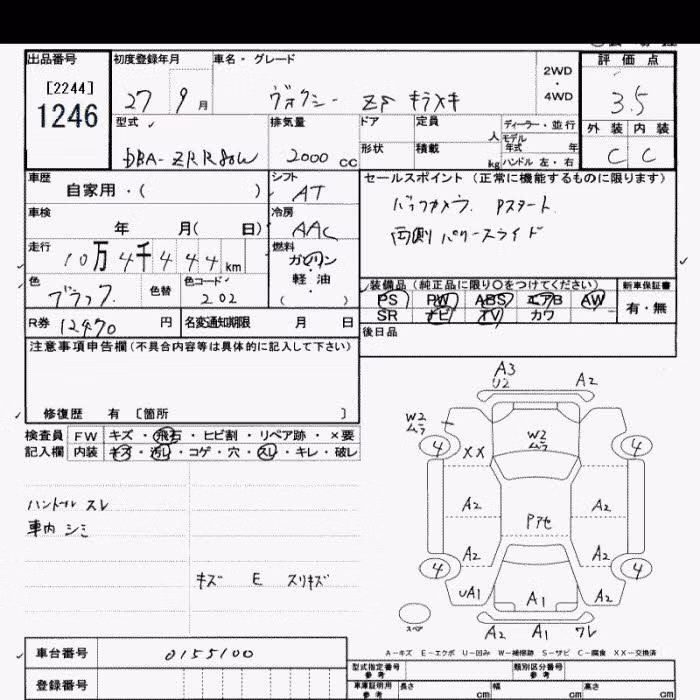 出品番号 初度登録年月 車名・グレード 2WD ・ 4WD 評価点
[2244]
1246
27 9月 ヴォクシー ZS キラメキ 3.5
型式 排気量 ドア 定員 人 ディーラー・並行 外装 内装
モデル年式 年
DBA-ZRR80W 2000 CC 形状 積載 kg ハンドル 左・右 C C
車歴 シフト セールスポイント (正常に機能するものに限ります)
自家用・( ) AT
バックカメラ. Pスタート.
車検 冷房
年 月( 日) AAC 両側パワースライド
走行 燃料
10万4千444km ガソリン・軽油・( )
色 色替 色コード 装備品 (純正品に限り○をつけてください) 新車保証書
ブラック 202 PS PW ABS エアB AW 有・無
R券 12470 円 名変通知期限 月 日 SR ナビ TV カワ
注意事項申告欄(不具合内容等は具体的に記入して下さい) 後日品
修復歴 有 〔箇所 〕
検査員 FW キズ・飛石・ヒビ割・リペア跡・×要
記入欄 内装 キズ・汚レ・コゲ・穴・スレ・キレ・破レ
ハンドル スレ
車内 シミ
キズ E スリキズ
A3
U2 A2
W2
ムラ W2
ムラ
4 XX 4
A2 A2
Pアセ
A2 A2
4 4
UA1 A1 A2
スペア A2 A1 ワレ
A-キズ E-エクボ U-凹み W-補修跡 S-サビ C-腐食 XX-交換済
車台番号 0155100
型式指定番号 参考 類別区分番号 参考
登録番号 車庫証明用 参考 長さ cm 幅 cm 高さ cm